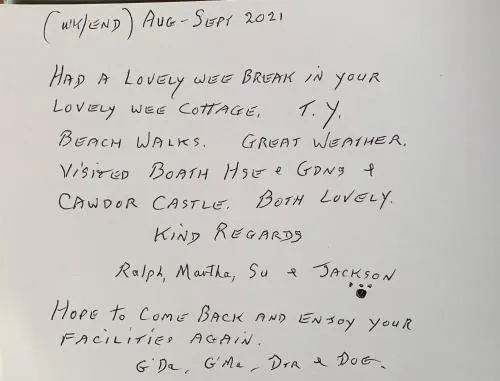 (WK/END) AUG-SEPT 2021
HAD A LOVELY WEE BREAK IN YOUR
LOVELY WEE COTTAGE. T.Y.
BEACH WALKS. GREAT WEATHER.
VISITED BOATH HSE & GDNS &
CAWDOR CASTLE. BOTH LOVELY.
KIND REGARDS
Ralph, Martha, Su & JACKSON
HOPE TO COME BACK AND ENJOY YOUR
FACILITIES AGAIN.
G'Da, G'Ma, DTR & DOG.